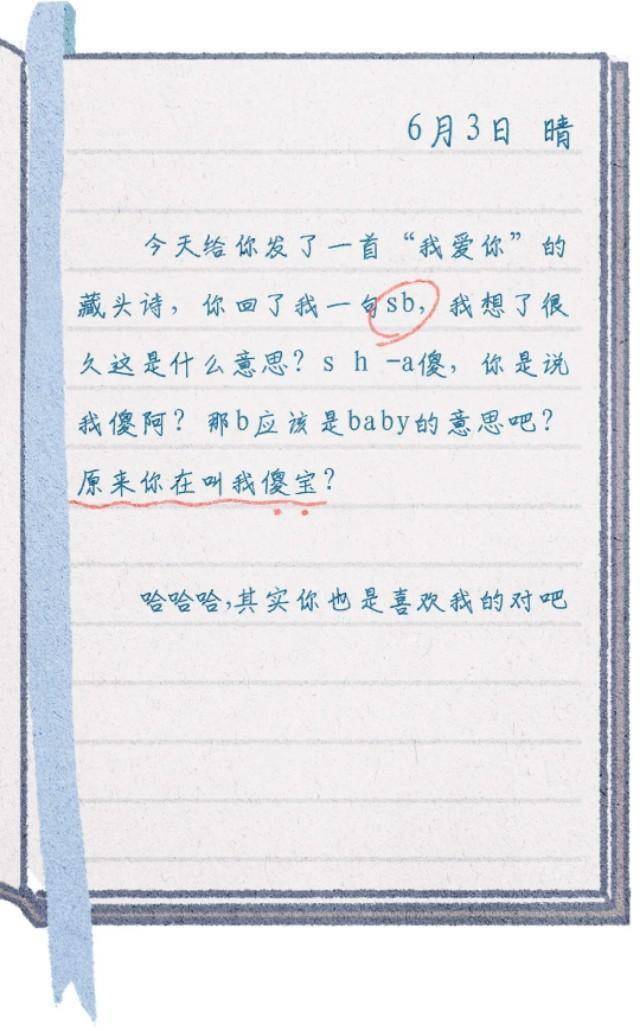 6月3日 晴
今天给你发了一首“我爱你”的
藏头诗，你回了我一句sb，我想了很
久这是什么意思？s h -a傻，你是说
我傻阿？那b应该是baby的意思吧？
原来你在叫我傻宝？
哈哈哈,其实你也是喜欢我的对吧